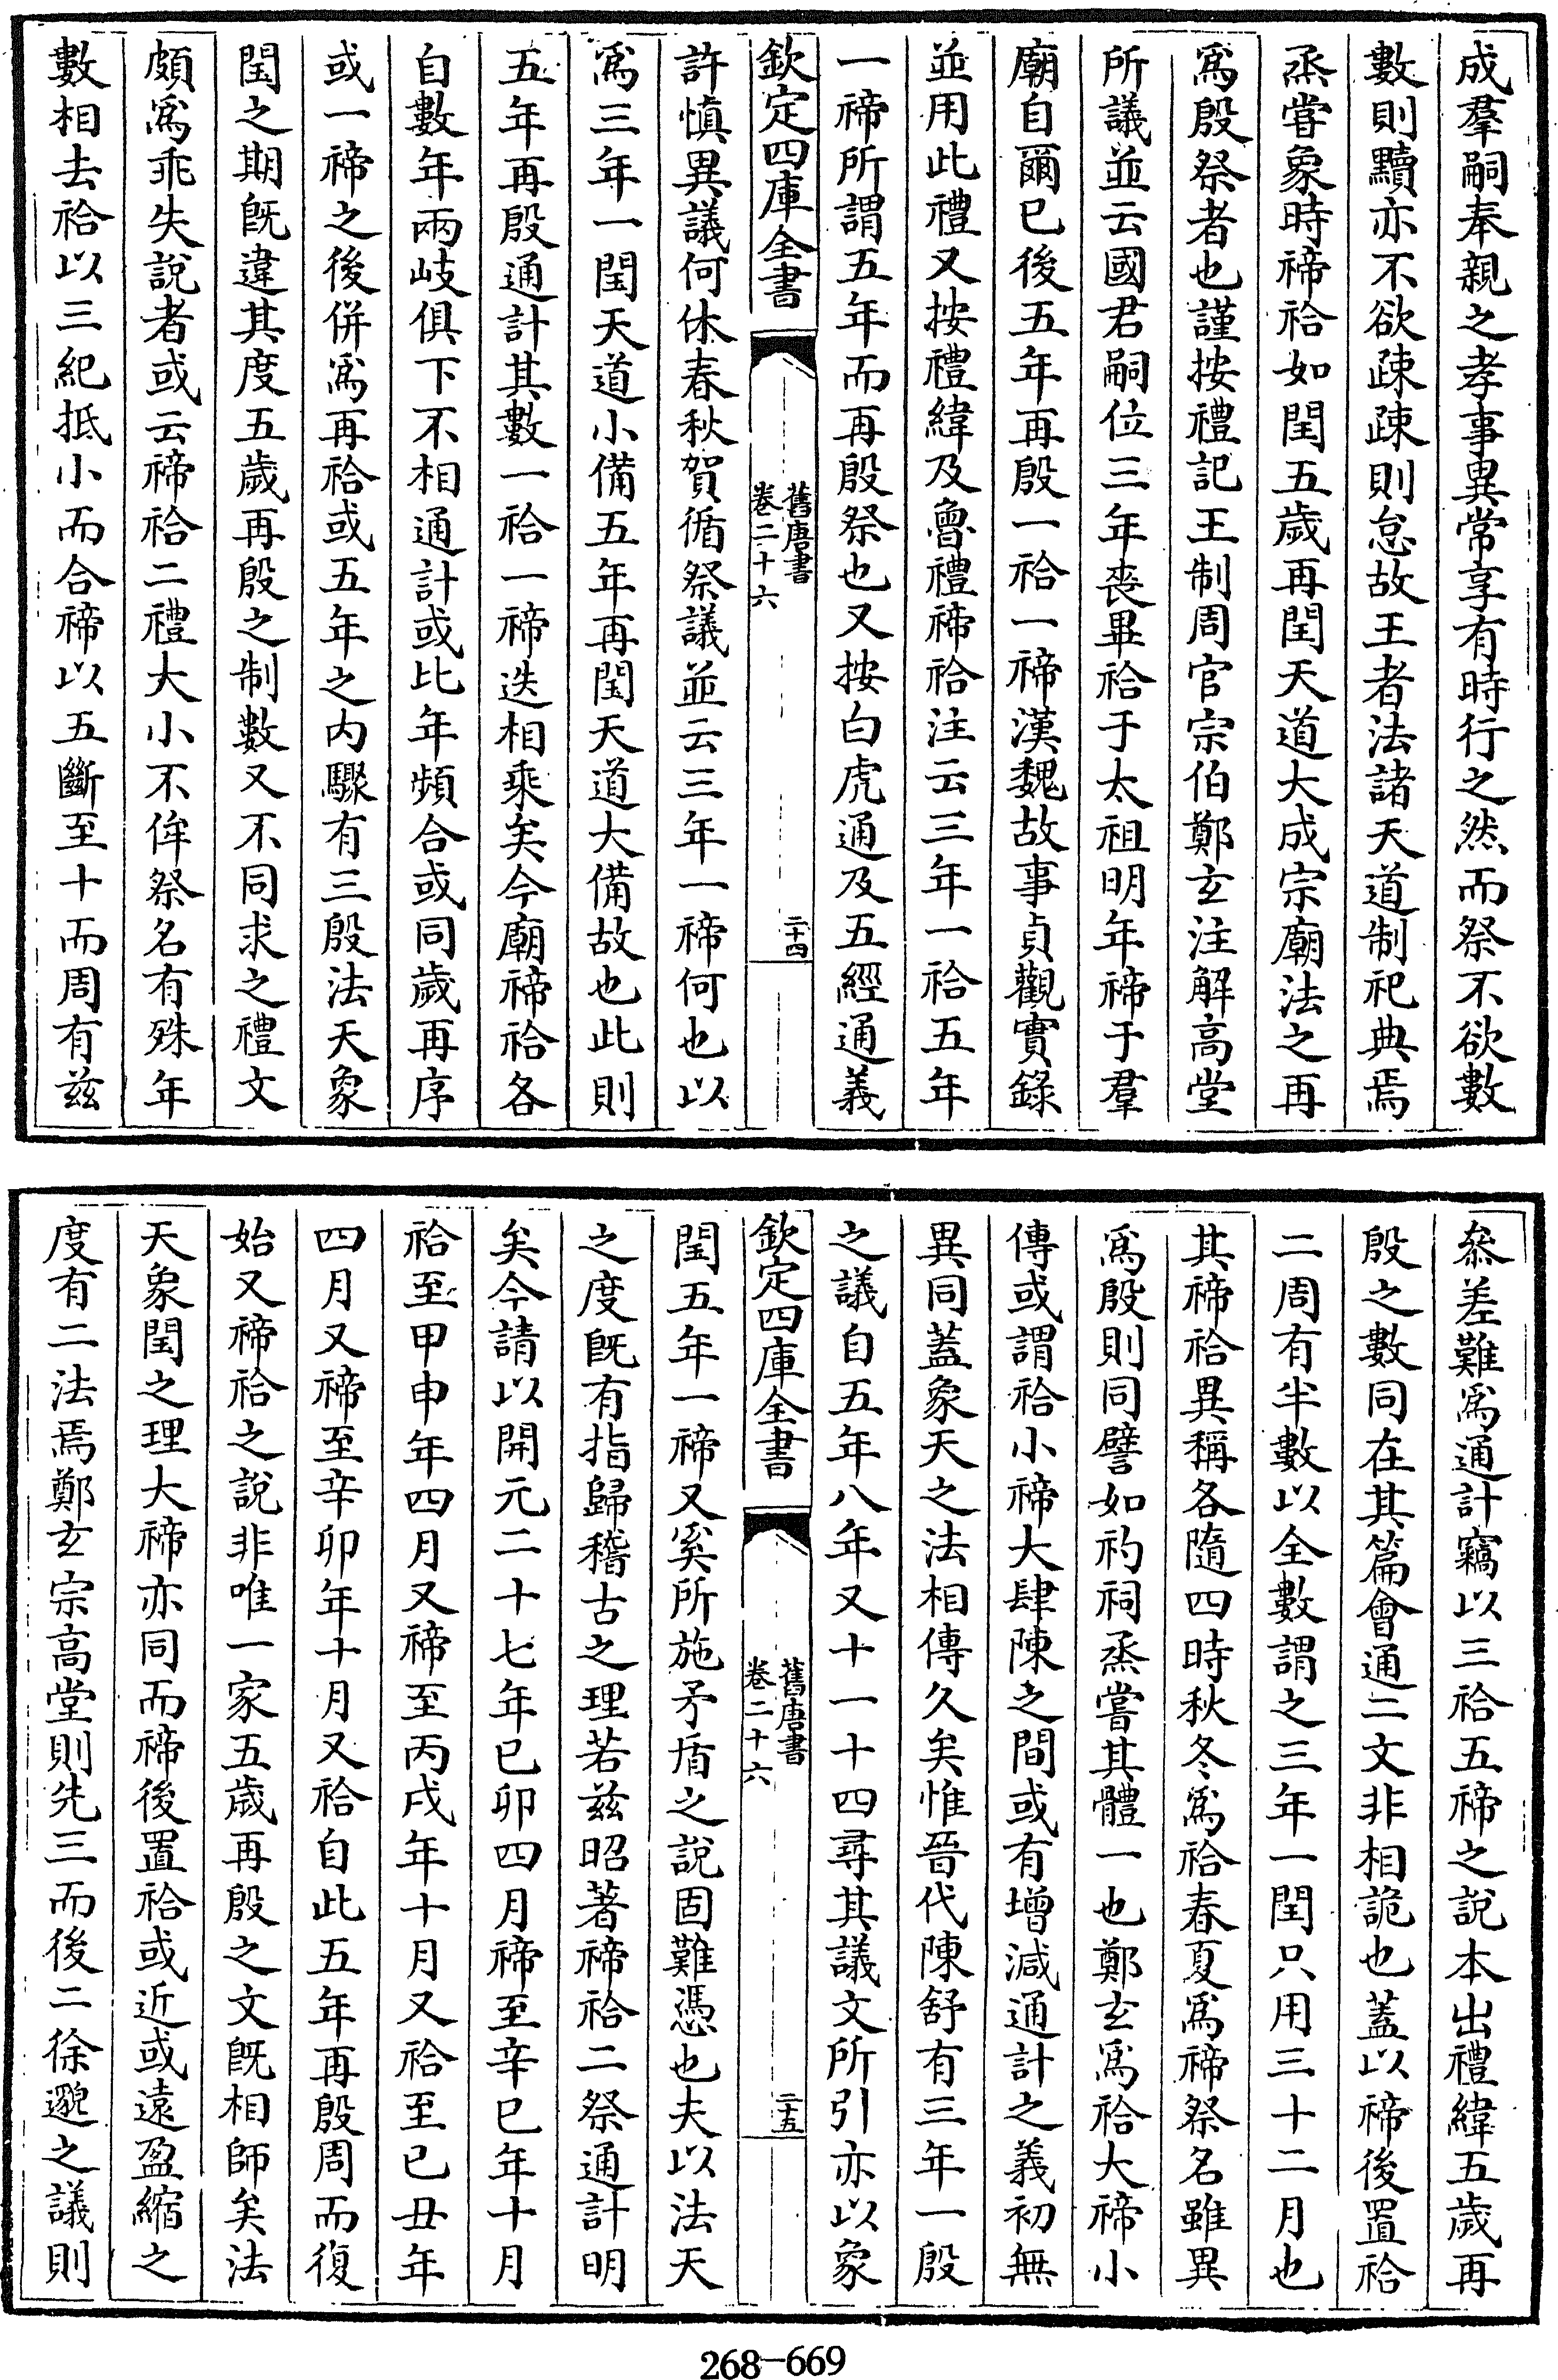 成羣嗣奉親之孝事異常享有時行之然而祭不欲數
數則黷亦不欲疎疎則怠故王者法諸天道制祀典焉
烝甞象時禘祫如閏五歲再閏天道大成宗廟法之再
爲殷祭者也謹按禮記王制周官宗伯鄭玄注解高堂
所議並云國君嗣位三年喪畢祫于太祖明年禘于羣
廟自爾已後五年再殷一祫一禘漢魏故事貞觀實錄
並用此禮又按禮緯及魯禮禘祫注云三年一祫五年
一禘所謂五年而再殷祭也又按白虎通及五經通義
欽定四庫全書
舊唐書
卷二十六
二十四
許慎異議何休春秋賀循祭議並云三年一禘何也以
爲三年一閏天道小備五年再閏天道大備故也此則
五年再殷通計其數一祫一禘迭相乘矣今廟禘祫各
自數年兩岐俱下不相通計或比年頻合或同歲再序
或一禘之後併爲再祫或五年之內驟有三殷法天象
閏之期旣違其度五歲再殷之制數又不同求之禮文
頗爲乖失說者或云禘祫二禮大小不侔祭名有殊年
數相去祫以三紀抵小而合禘以五斷至十而周有兹
叅差難爲通計竊以三祫五禘之說本出禮緯五歲再
殷之數同在其篇會通二文非相詭也蓋以禘後置祫
二周有半數以全數謂之三年一閏只用三十二月也
其禘祫異稱各隨四時秋冬爲祫春夏爲禘祭名雖異
爲殷則同譬如礿祠烝嘗其體一也鄭玄爲祫大禘小
傳或謂祫小禘大肆陳之間或有增減通計之義初無
異同蓋象天之法相傳久矣惟晉代陳舒有三年一殷
之議自五年八年又十一十四尋其議文所引亦以象
欽定四庫全書
舊唐書
卷二十六
二十五
閏五年一禘又奚所施矛盾之說固難憑也夫以法天
之度旣有指歸稽古之理若兹昭著禘祫二祭通計明
矣今請以開元二十七年己卯四月禘至辛巳年十月
祫至甲申年四月又禘至丙戌年十月又祫至己丑年
四月又禘至辛卯年十月又祫自此五年再殷周而復
始又禘祫之說非唯一家五歲再殷之文旣相師矣法
天象閏之理大禘亦同而禘後置祫或近或遠盈縮之
度有二法焉鄭玄宗高堂則先三而後二徐邈之議則
268-669